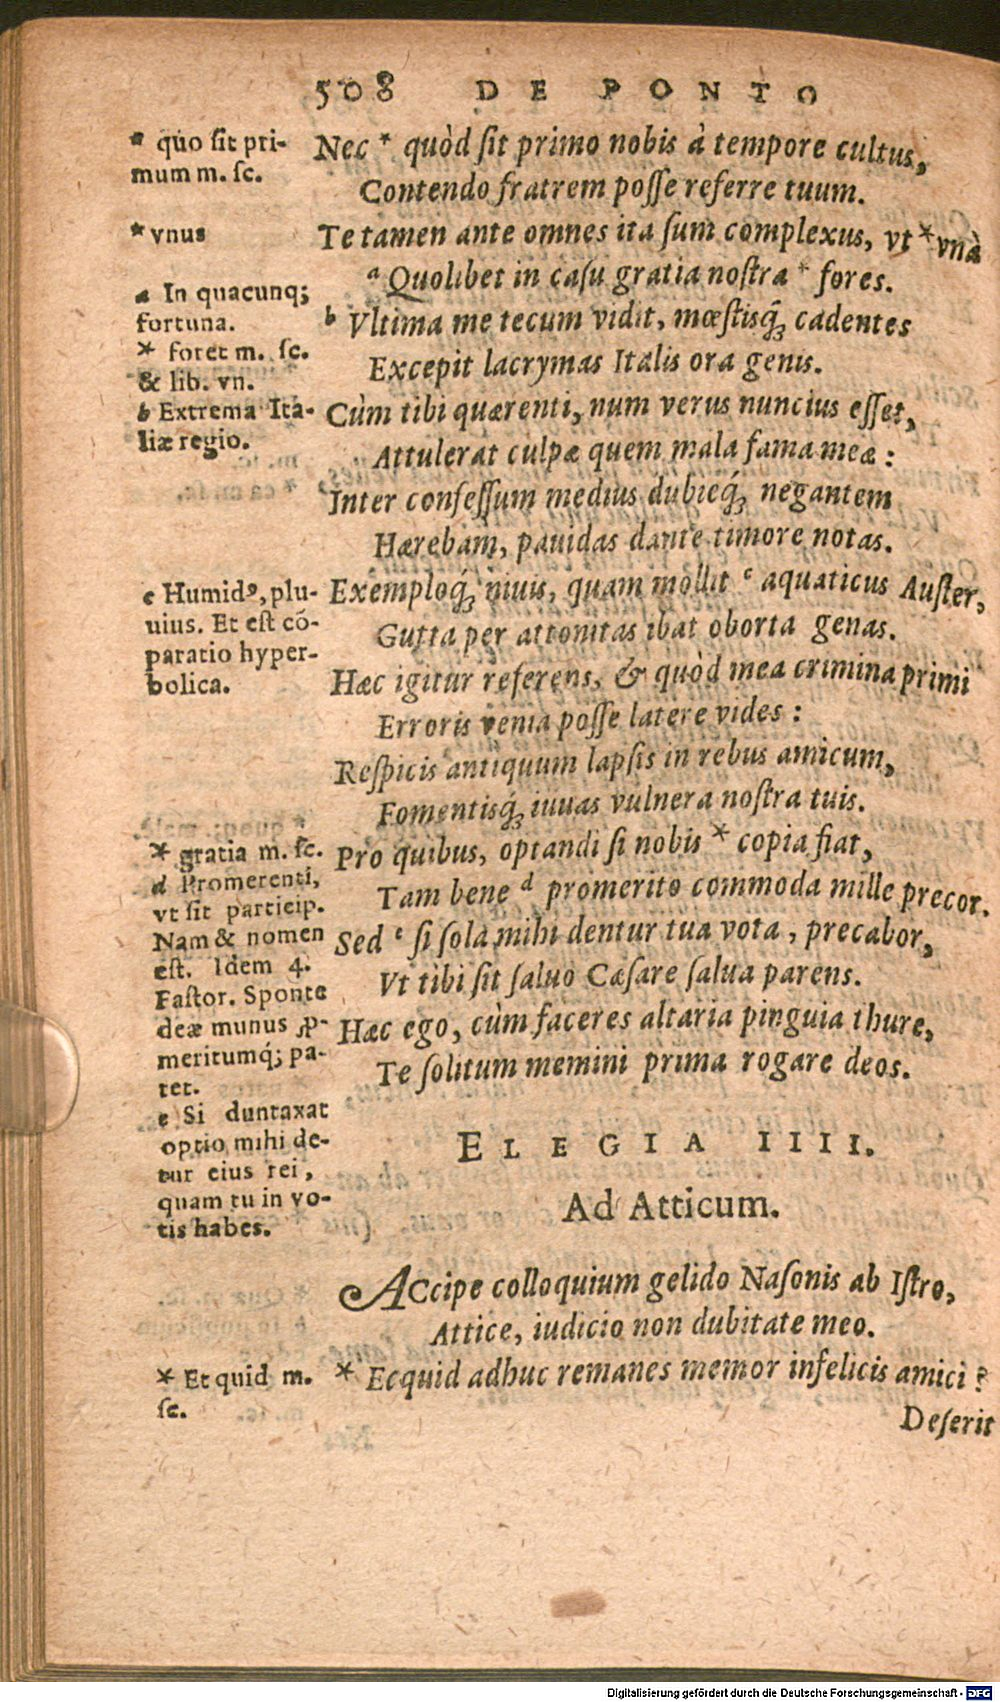 508 DE PONTO
* quo sit pri-
mum m. sc.
* vnus
a In quacunq;
fortuna.
* foret m. sc.
& lib. vn.
b Extrema Ita-
liæ regio.
c Humidꝰ, plu-
uius. Et est cō-
paratio hyper-
bolica.
* gratia m. sc.
d Promerenti,
vt sit particip.
Nam & nomen
est. Idem 4.
Fastor. Sponte
deæ munus ꝓ-
meritumq́; pa-
tet.
e Si duntaxat
optio mihi de-
tur eius rei,
quam tu in vo-
tis habes.
* Et quid m.
sc.
Nec * quòd sit primo nobis à tempore cultus,
Contendo fratrem posse referre tuum.
Te tamen ante omnes ita sum complexus, vt * vnà
a Quolibet in casu gratia nostra * fores.
b Vltima me tecum vidit, mœstisq́; cadentes
Excepit lacrymas Italis ora genis.
Cùm tibi quærenti, num verus nuncius esset,
Attulerat culpæ quem mala fama meæ:
Inter confessum medius dubieq́; negantem
Hærebam, pauidas dante timore notas.
Exemploq́; niuis, quam mollit c aquaticus Auster,
Gutta per attonitas ibat oborta genas.
Hæc igitur referens, & quòd mea crimina primi
Erroris venia posse latere vides:
Respicis antiquum lapsis in rebus amicum,
Fomentisq́; iuuas vulnera nostra tuis.
Pro quibus, optandi si nobis * copia fiat,
Tam bene d promerito commoda mille precor.
Sed e si sola mihi dentur tua vota, precabor,
Vt tibi sit saluo Cæsare salua parens.
Hæc ego, cùm faceres altaria pinguia thure,
Te solitum memini prima rogare deos.
ELEGIA IIII.
Ad Atticum.
ACcipe colloquium gelido Nasonis ab Istro,
Attice, iudicio non dubitate meo.
* Ecquid adhuc remanes memor infelicis amici?
Deserit
Digitalisierung gefördert durch die Deutsche Forschungsgemeinschaft - DFG